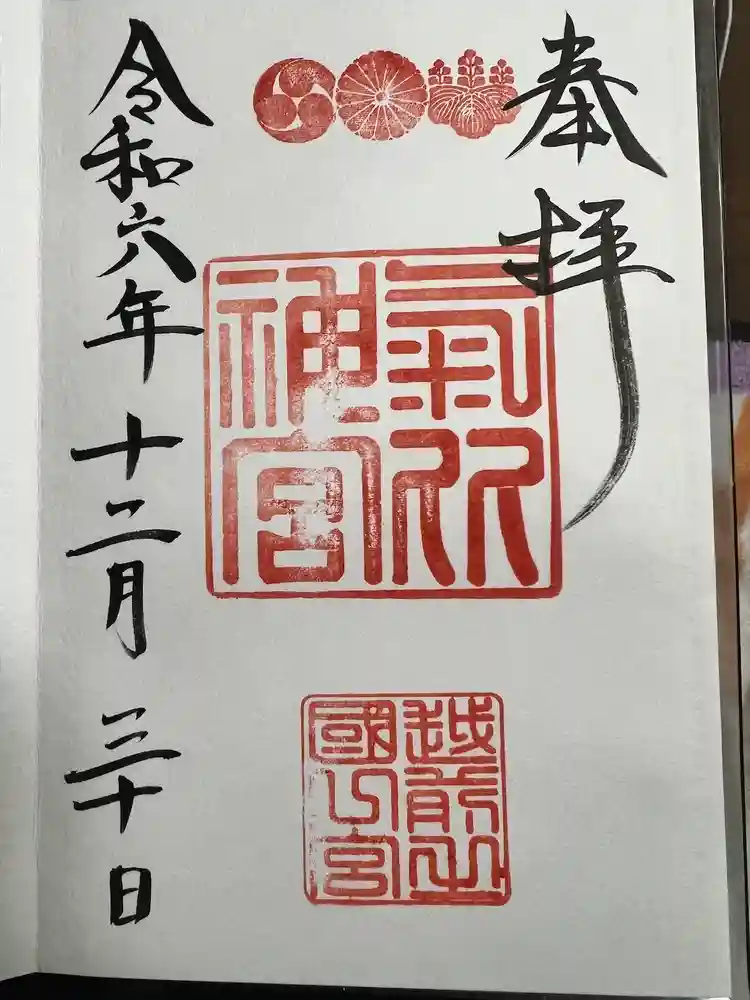 奉拝
氣比
神宮
越前之
國一宮
令和六年十二月三十日